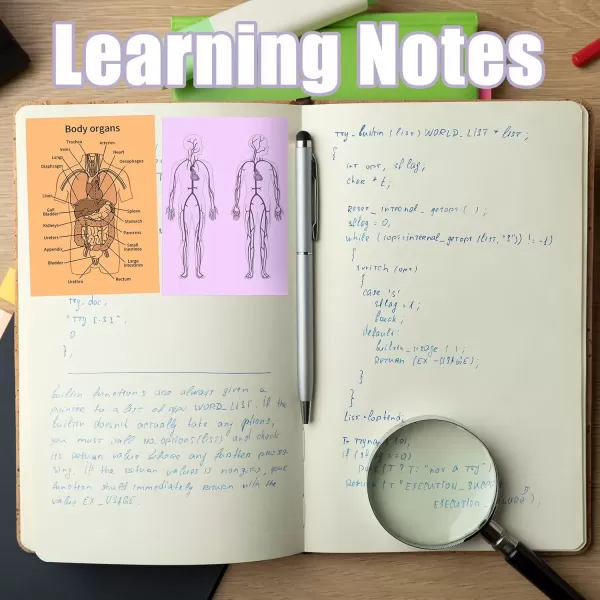 Learning Notes
Body organs
Trachea
Veins
Lungs
Diaphragm
Arteries
Heart
Oesophagus
Liver
Gall
Bladder
Kidneys
Ureters
Appendix
Bladder
Urethra
Spleen
Stomach
Pancreas
Small
Intestines
Large
Intestines
Rectum
try_doc,
"tty [-s]",
0
};
builtin functions are always given a
pointer to a list of type WORD_LIST. if the
builtin doesn't actually take any options,
you must call no_options(list) and check
its return value before any further proces
sing. if the return value is nonzero, your
function should immediately return with the
value EX_USAGE.
tty_builtin (list) WORD_LIST * list;
{
int opt, sflag;
char * t;
reset_internal_getopt ( );
sflag = 0;
while ((opt=internal_getopt (list, "s")) != -1)
{
switch (opt)
{
case 's'
sflag = 1;
break;
default:
builtin_usage ( );
return (EX_USAGE);
}
}
list = loptend;
puts (t ? t: "not a tty")
return (t ? EXECUTION_SUCC
EXECUTION_